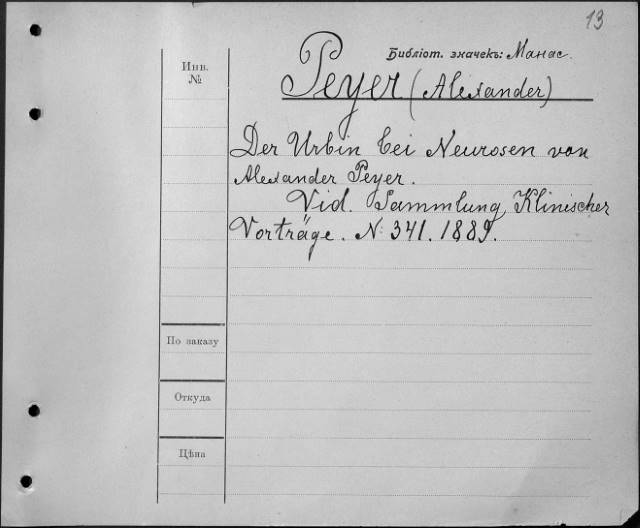 13
Библіот. значекъ: Манас.
Инв.
№
Peyer (Alexander)
Der Urbin bei Neurosen von
Alexander Peyer.
Vid. Sammlung Klinischer
Vorträge. N: 341. 1889.
По заказу
Откуда
Цѣна